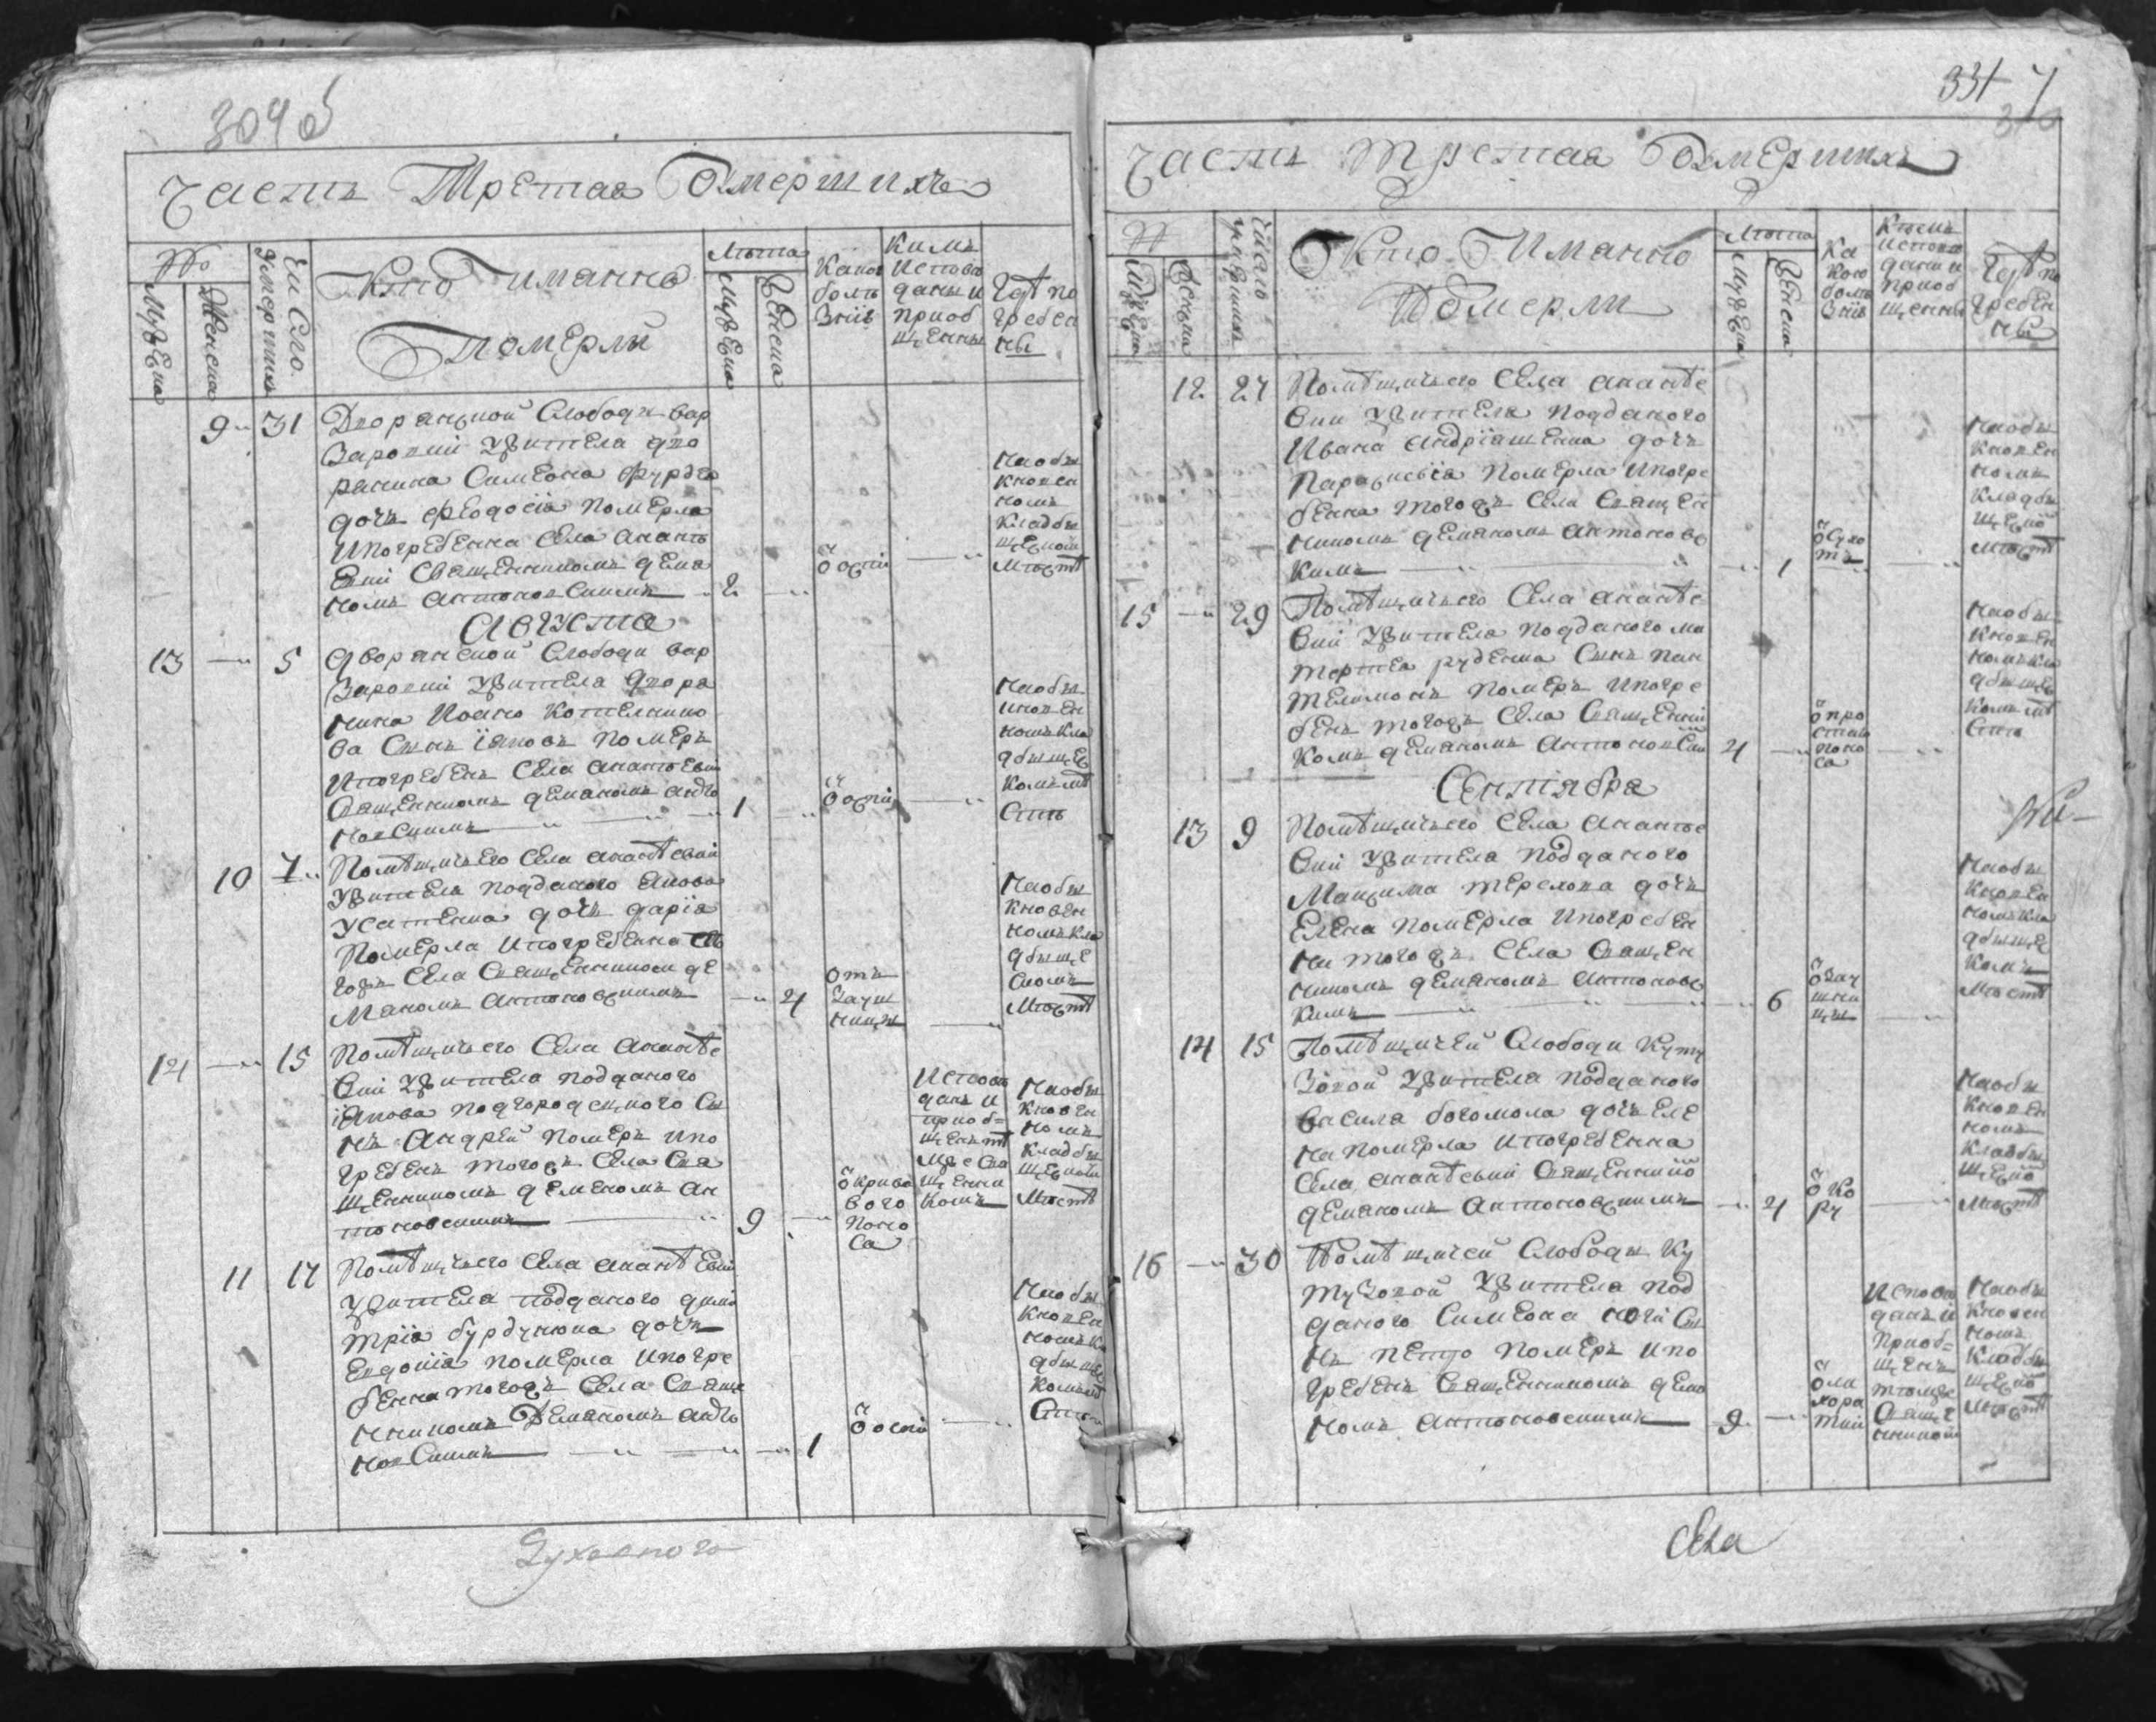 309 об
Часть Третая Оумершихъ
№
Мужеска
Женска
Число умершихъ
Кто Иманно
Померлы
Лѣта
Мужеска
Женска
Какою
болѣ
знію
Кимъ
испове
даны и
приоб
щенны
Гдѣ по
гребен
ны
9 31 Дворанцкой Слободи вар
варовки жителя дво
ранина Симеона
дочъ феодосія померла
ипогребенна Села Анать
евки Священникомъ демя
номъ Антоновскимъ 2
Ѿ оспи
Наобы
кновен
номъ
Кладбы
щенномъ
Мѣстѣ
Августа
13 5 Дворанской Слободи вар
варовки жителя двора
нина Иоана Котелнико
ва Сынъ іяковъ померъ
ипогребенъ Села Анатьевки
Священникомъ демяномъ Анто
новскимъ 1
Ѿ оспи
Наобы
кновен
номъ Кла
дбыще
комъ мѣ
стѣ
10 7 Помѣщичьего Села Анатѣевки
жителя подданого Якова
усатенка дочъ дарія
Померла ипогребенна то
гожъ Села Священникомъ де
мяномъ Антоновскимъ 4
отъ
Задш
ницы
Наобы
кновен
номъ Кла
дбыще
скомъ
Мѣстѣ
14 15 Помѣщичьего Села Анатѣе
вки жителя подданого
іакова подгородецкого Сы
нъ Андрей померъ ипо
гребенъ тогожъ Села Свя
щенникомъ демяномъ Ан
тоновскимъ 9
Ѿ крива
вого
поно
са
Испове
данъ и
приоб=
щенъ т
мже Свя
щенни
комъ
Наобы
кновен
номъ
Кладбы
щенномъ
Мѣстѣ
11 17 Помѣщичьего Села Анатѣевки
жителя подданого дими
трія бурдунюка дочъ
Евдокія померла ипогре
бенна тогожъ Села Свяще
нникомъ Демяномъ Анто
новскимъ 1
Ѿ оспи
Наобы
кновен
номъ К
дбыще
комъ мѣ
стѣ
Духовного
331 7
310
Часть Третая Оумершихъ
№
Мужеска
Женска
Число умершихъ
Кто Иманно
Померли
Лѣта
Мужеска
Женска
Ка
кою
болѣ
знію
Кѣмъ
исповѣ
даны и
приоб
щенны
Гдѣ по
гребен
ны
12 27 Помѣщичьего Села Анатѣе
вки жителя подданого
Ивана Андріяшенка дочъ
Параскевія померла ипогре
бенна тогожъ Села Священ
никомъ демяномъ Антоновс
кимъ 1
Ѿ Сухо
тъ
Наобы
кновен
номъ
кладбы
щено
Мѣстѣ
15 29 Помѣщичьего Села Анатѣе
вки жителя подданого Ма
твея руденка Сынъ пан
телимонъ померъ ипогре
бенъ тогожъ Села Священни
комъ демяномъ Антоновски 4
Ѿ про
стаго
поно
са
Наобы
кновен
номъ Кла
дбыще
комъ мѣ
стѣ
Сентября
13 9 Помѣщичьего Села Анатье
вки жителя подданого
Макцима дочъ
Елена померла ипогребен
на тогожъ Села Священ
никомъ демяномъ Антоновс
кимъ 6
Ѿ Зад
шни
цы
Наобы
кновен
номъ Кла
дбыще
комъ
Мѣстѣ
14 15 Помѣщичей Слободи Куту
зовой жителя подданого
Василя богомола дочъ Еле
на померла ипогребенна
Села Анатѣевки Священнико
демяномъ Антоновскимъ 4
Ѿ Ко
ру
Наобы
кновен
номъ
Кладбы
щено
Мѣстѣ
16 30 Помѣщичей Слободы Ку
тузовой жителя под
даного Симеона Сы
нъ петро померъ ипо
гребенъ Священникомъ демя
номъ Антоновскимъ 9
Ѿ ли
хора
тки
Испове
данъ и
приоб=
щенъ
тѣмже
Священ
никомъ
Наобы
кновен
номъ
Кладбы
щено
Мѣстѣ
Села